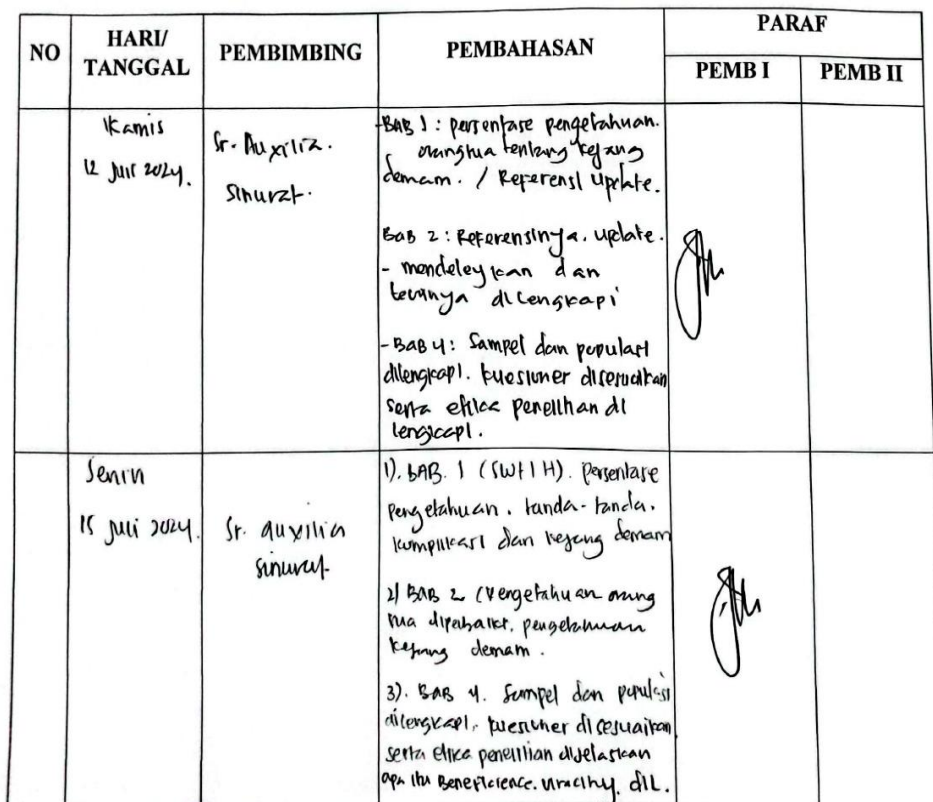 NO
HARI/
TANGGAL
PEMBIMBING
PEMBAHASAN
PARAF
PEMB I
PEMB II
Kamis
12 Juli 2024.
Sr. Auxilia.
Sinurat.
-BAB 1 : persentase pengetahuan.
orangtua tentang kejang
demam. / Referensi update.
BAB 2 : Referensinya. update.
- mendeleykan dan
teorinya dilengkapi
- BAB 4 : Sampel dan populasi
dilengkapi. kuesioner disesuaikan
serta etika penelitian di
lengkapi.
Senin
15 Juli 2024.
Sr. auxilia
sinurat
1). BAB. 1 (5W+1H). persentase
pengetahuan. tanda-tanda.
komplikasi dan kejang demam
2) BAB 2 (Pengetahuan orang
tua diperbaiki. pengetahuan
kejang demam.
3). BAB 4. Sampel dan populasi
dilengkapi. kuesioner disesuaikan
serta etika penelitian dijelaskan
apa itu Beneficience. dll.